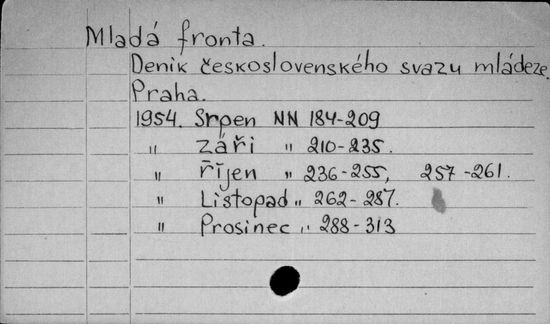 Mladá fronta.
Deník československého svazu mládeze.
Praha.
1954. Srpen NN 184-209
" září " 210-235.
" říjen " 236-255, 257-261.
" Listopad " 262-287.
" Prosinec " 288-313